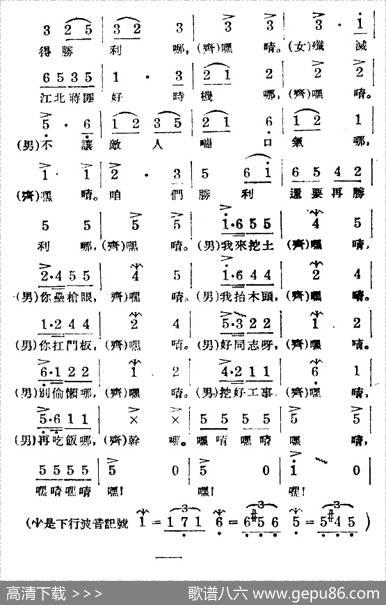 3 2 5 | 3 2 3 | 3 3 | 3 · i
得勝 利 哪，(齊)嘿 唷。(女)殲 滅
6 5 3 5 | 1 · 3 | 2 1 2 | 2 2
江北蔣匪 好 時 機 哪，(齊)嘿 唷。
5 · 6 | 1 2 3 5 | 2 1 6 | 1 2 1
(男)不 讓 敵 人 喘 口 氣 哪，
1 1 | 2 · 3 | 5 6 i | 6 5 4 2
(齊)嘿 唷。咱 們 勝 利 還要再勝
5 5 | 5 5 | i·6 5 5 | 4 5
利 哪，(齊)嘿 唷。(男)我來挖土，(齊)嘿 唷，
2·4 5 5 | 4 5 | 1·6 4 4 | 2 4
(男)你壘槍眼，齊)嘿 唷。(男)我抬木頭，(齊)嘿 唷。
1·2 4 4 | 2 4 | 5·3 2 2 | 1 2
(男)你扛門板，(齊)嘿 唷。(男)好同志呀，(齊)嘿 唷。
6·1 2 2 | 1 2 | 4·2 1 1 | 6 1
(男)別偷懶哪，(齊)嘿 唷。(男)挖好工事，(齊)嘿 唷，
5·6 1 1 | × × | 5 5 5 5 | 5 5
(男)再吃飯哪，(齊)幹 哪。嘿唷嘿唷 嘿 唷，
5 5 5 5 | 5 0 | 5 0 | i 0
嘿唷嘿唷 嘿! 嘿! 嘿!
(是下行波音記號 1 = 1 7 1 6 = 6 #5 6 5 = 5 #4 5)
高清下载 >>> 歌谱八六 www.gepu86.com